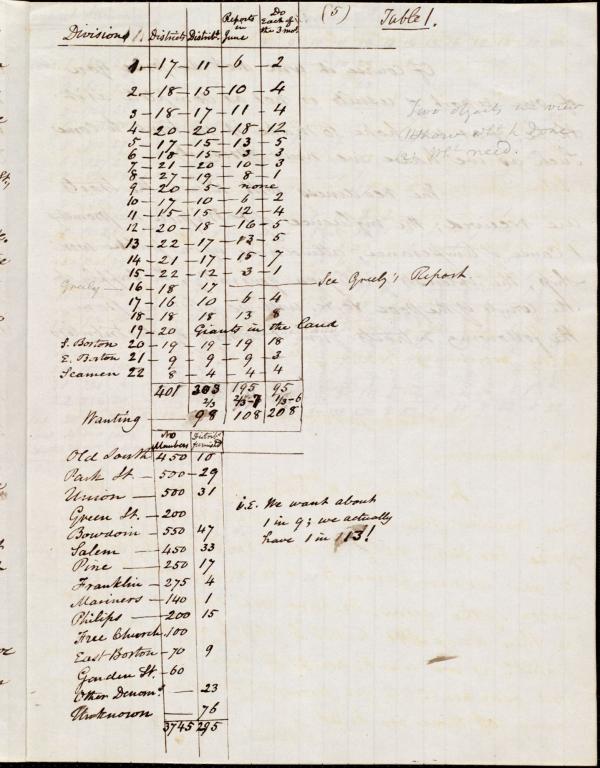 (5) Table 1.
Divisions Districts Distribrs. Reports in June Do Each of the 3 mos.
1. — 17 — 11 — 6 — 2
2. — 18 — 15 — 10 — 4
3 — 18 — 17 — 11 — 4
4 — 20 — 20 — 18 — 12
5 — 17 — 15 — 13 — 5
6 — 18 — 15 — 3 — 3
7 — 21 — 20 — 10 — 3
8 — 27 — 19 — 8 — 1
9 — 20 — 5 — none
10 — 17 — 10 — 6 — 2
11 — 15 — 15 — 12 — 4
12 — 20 — 18 — 16 — 5
13 — 22 — 17 — 13 — 5
14 — 21 — 17 — 15 — 7
15 — 22 — 12 — 3 — 1
Greely — 16 — 18 — 17 — See Greely's Report
17 — 16 — 10 — 6 — 4
18 — 18 — 18 — 13 — 8
19 — 20 Giants in the land
S. Boston 20 — 19 — 19 — 19 — 18
E. Boston 21 — 9 — 9 — 9 — 3
Seamen 22 — 8 — 4 — 4 — 4
401 303 195 95
2/3 2/3-7 1/3-6
Wanting — 98 108 208
No Members Distribs. furnished
Old South 450 10
Park St. — 500 — 29
Union — 500 31
Green St. — 200
Bowdoin — 550 47
Salem — 450 33
Pine — 250 17
Franklin — 275 4
Mariners — 140 1
Philips — 200 15
Free Church 100
East Boston — 70 9
Garden St. — 60
Other Denoms. — 23
Unknown — 76
3745 295
i.E. We want about
1 in 9; we actually
have 1 in 113!
Two objects in view
need.